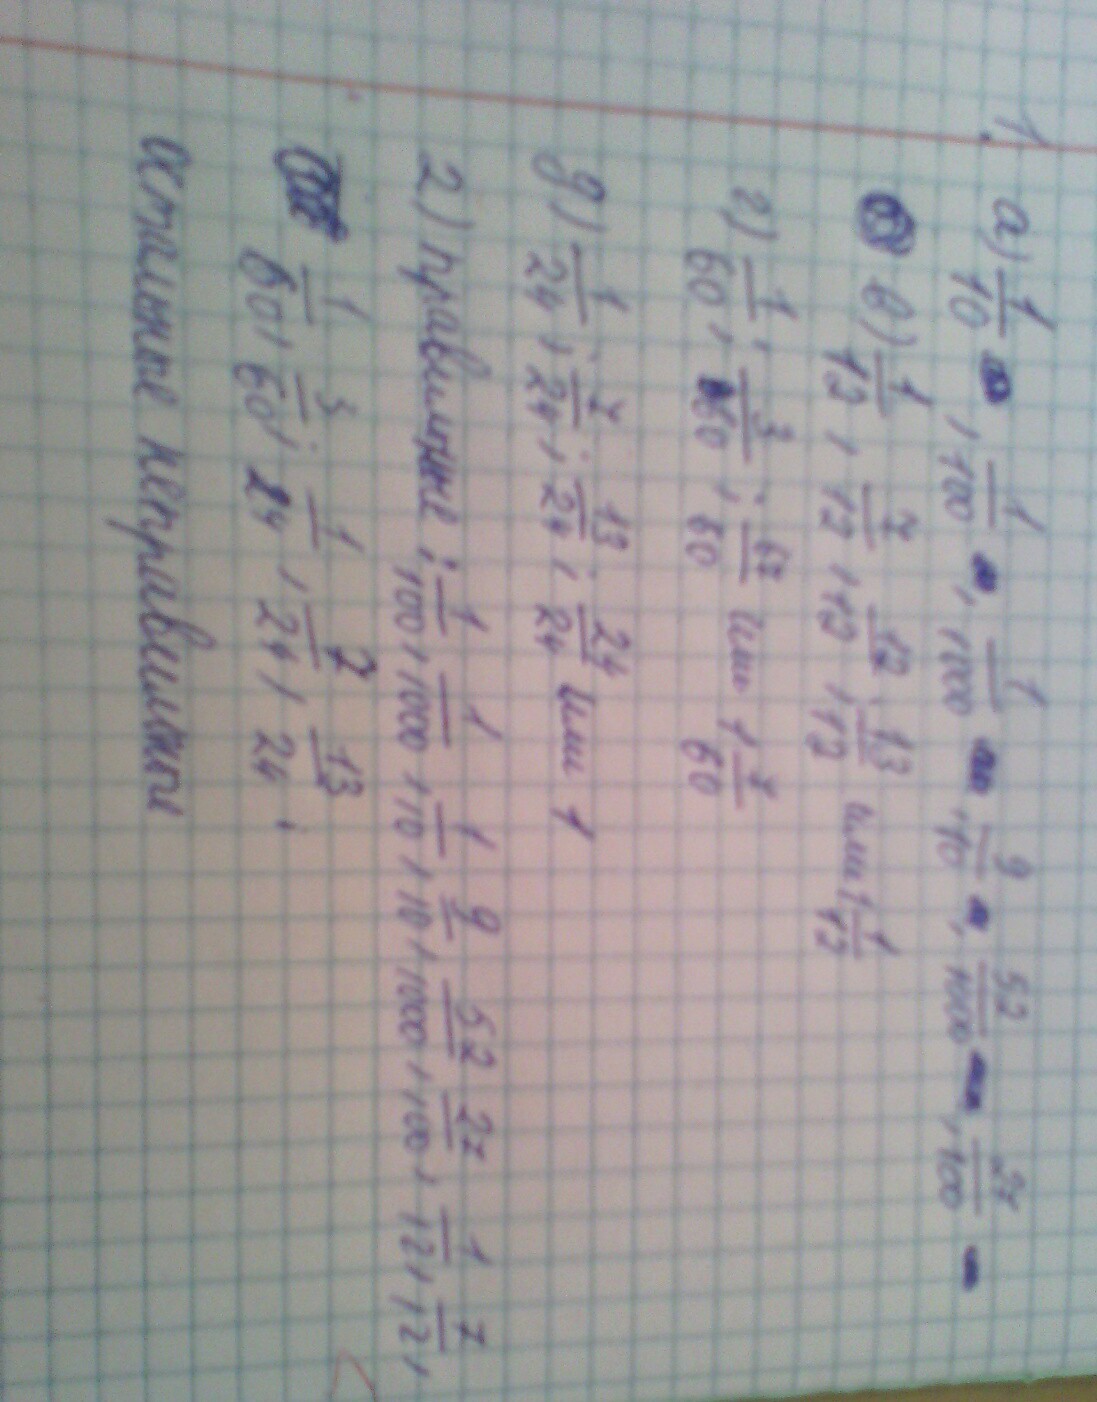 1. а) 1/10, 1/100, 1/1000, 9/10, 52/1000, 27/100
в) 1/12, 7/12, 12/12, 13/12 или 1 1/12
г) 1/60; 7/60; 67/60 или 1 7/60
д) 1/24; 7/24; 13/24; 24/24 или 1
2) правильные: 1/100, 1/1000, 1/10, 9/10, 52/1000, 27/100, 1/12, 7/12,
1/60, /60; 1/24, 7/24, 13/24.
остальные неправильные